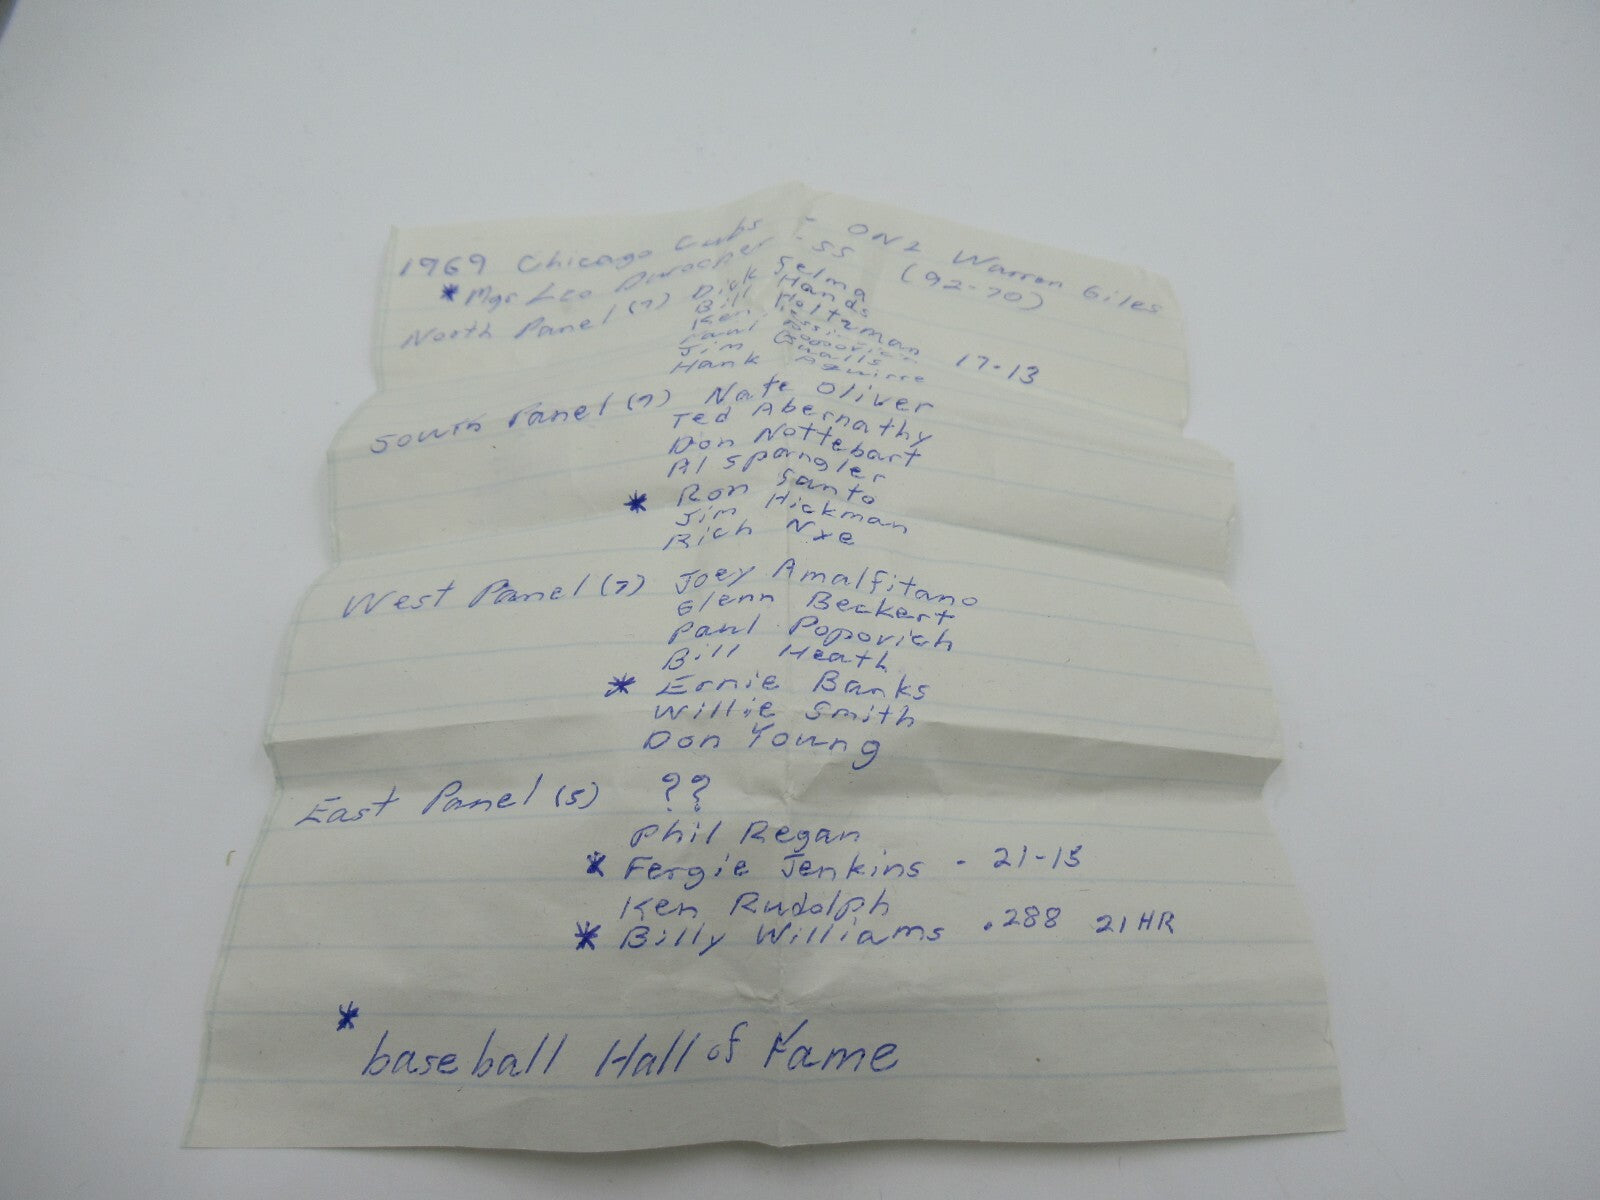 1969 Chicago Cubs - ONL Warren Giles
* Mgr Leo Durocher - SS (92-70)
North Panel (7) Dick Selma
Bill Hands
Ken Holtzman 17-13
Paul
Jim Qualls
Hank Aguirre
South Panel (7) Nate Oliver
Ted Abernathy
Don Nottebart
Al Spangler
* Ron Santo
Jim Hickman
Rich Nye
West Panel (7) Joey Amalfitano
Glenn Beckert
Paul Popovich
Bill Heath
* Ernie Banks
Willie Smith
Don Young
East Panel (5) ??
Phil Regan
* Fergie Jenkins - 21-15
Ken Rudolph
* Billy Williams .288 21 HR
*
baseball Hall of Fame